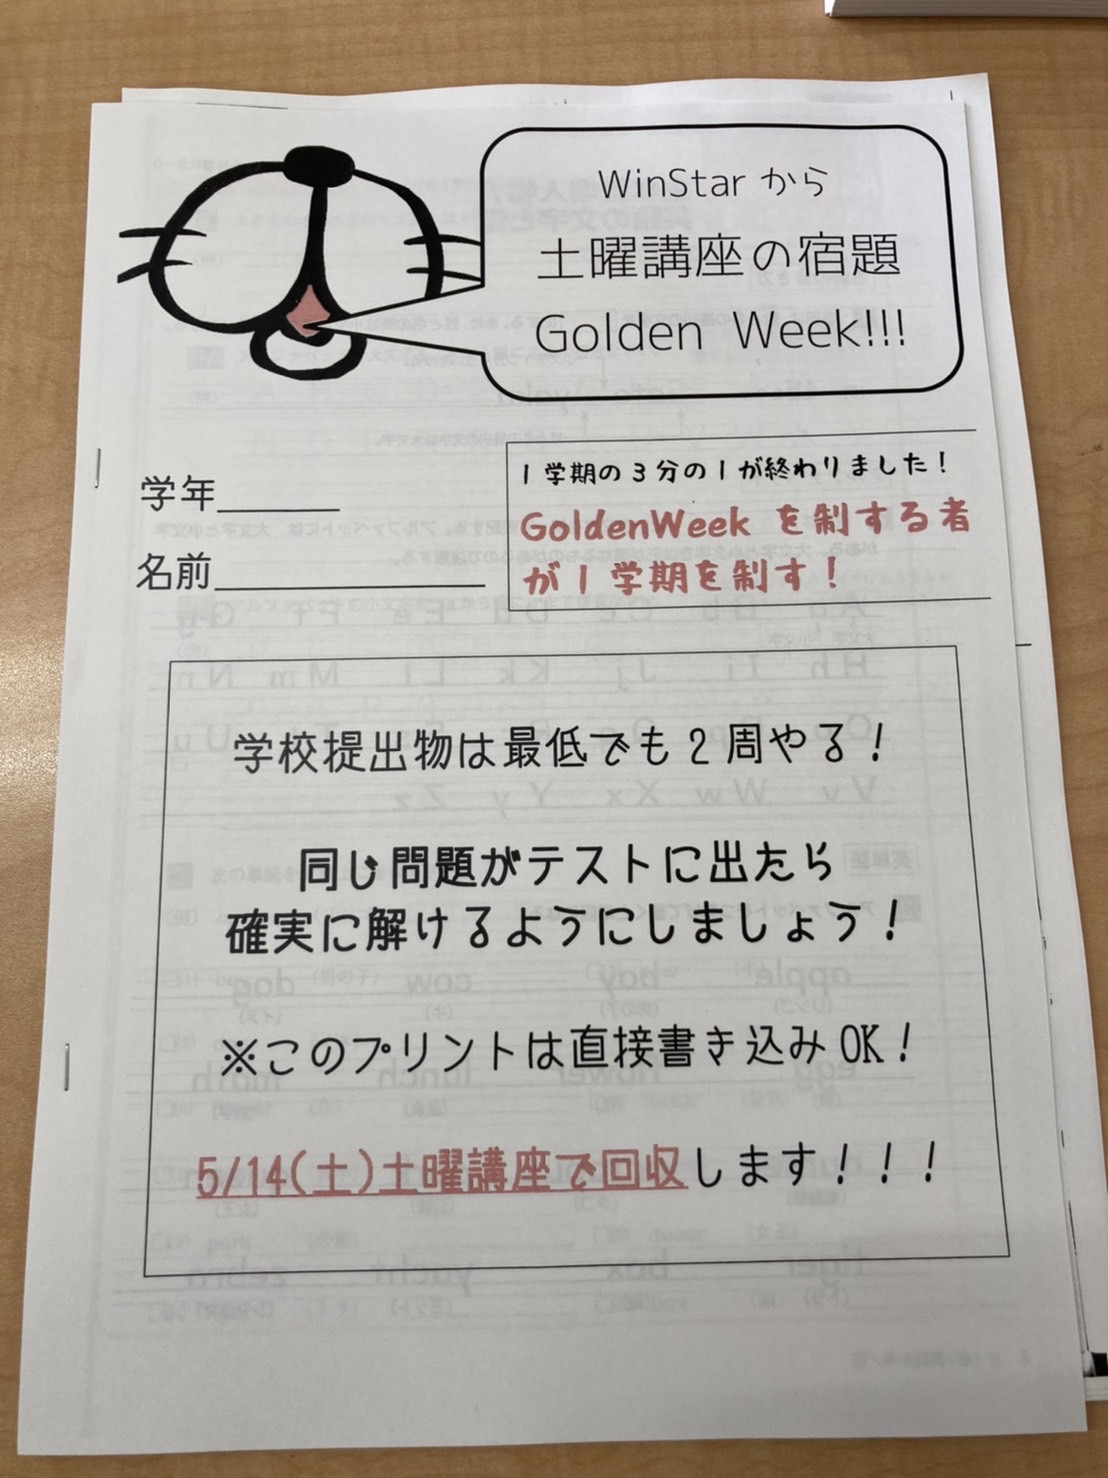 WinStar から
土曜講座の宿題
Golden Week!!!
学年
名前
1学期の3分の1が終わりました！
GoldenWeek を制する者
が1学期を制す！
学校提出物は最低でも2周やる！
同じ問題がテストに出たら
確実に解けるようにしましょう！
※このプリントは直接書き込みOK！
5/14(土)土曜講座で回収します！！！